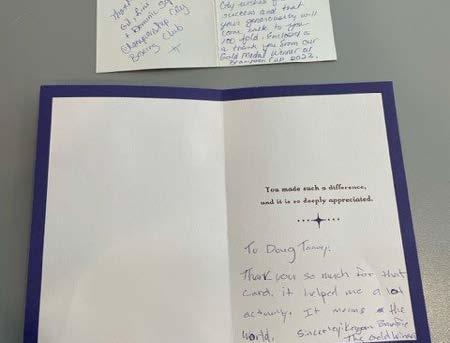 & Dominic
Championship City
Boxing Club
City wishes
success and that
your generousity will
come back to you
100 fold. Enclosed is
a thank you from our
Gold Medal Winner at
Cup 2023.
You made such a difference,
and it is so deeply appreciated.
To Doug
Thank you so much for that
card, it helped me a lot
actually. It means the
world. Sincerely,
The Gold Winner